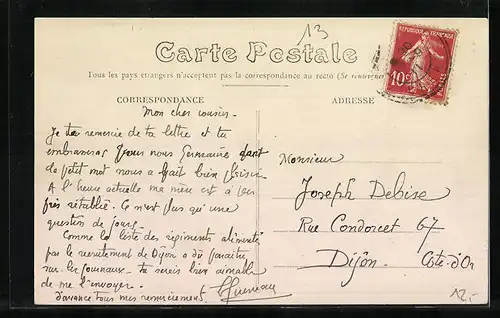 13
Carte Postale
Tous les pays étrangers n'acceptent pas la correspondance au recto (Se renseigner
REPUBLIQUE FRANÇAISE
10c
POSTES
CORRESPONDANCE
ADRESSE
Mon cher cousin.
Je te remercie de ta lettre et tu
embrasseras pour nous Germaine dont
le petit mot nous a fait bien plaisir
A l'heure actuelle ma mère est à peu
près rétablie. Ce n'est plus qu'une
question de jours.
Comme la liste des régiments alimentés
par le recrutement de Dijon a dû paraître
sur les journaux - tu serais bien aimable
de me l'envoyer.
d'avance tous mes remerciements.
Monsieur
Joseph Debise
Rue Condorcet 67
Dijon.
Côte-d'Or
12.-